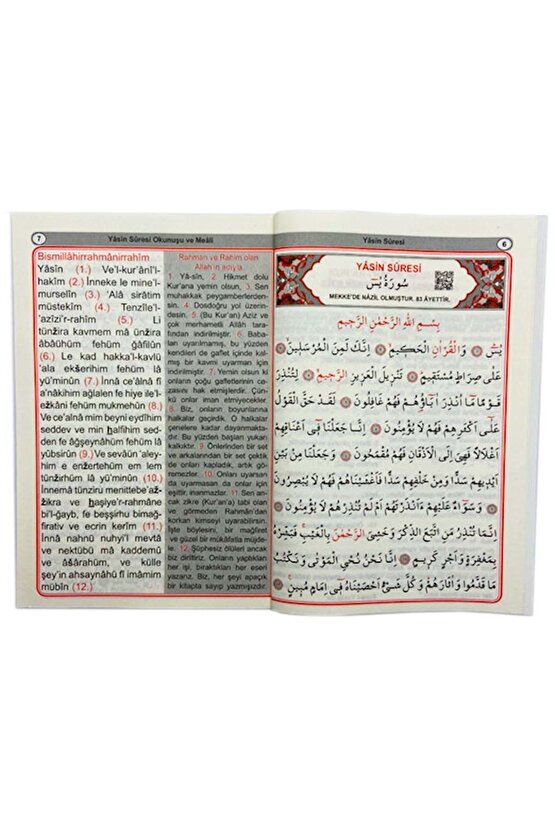 7
Yâsin Sûresi Okunuşu ve Meâli
Bismillâhirrahmânirrahîm
Yâsîn (1.) Ve'l-kur'ânî'l-
hakîm (2.) İnneke le mine'l-
murselîn (3.) 'Alâ sirâtim
müstekîm (4.) Tenzîle'l-
'azîzi'r-rahîm (5.) Li
tünžira kavmem mâ ünžira
âbâühüm fehüm gâfilûn
(6.) Le kad hakka'l-kavlü
'ala ekšerihim fehüm lâ
yü'minûn (7.) İnna ce'alnâ fî
a'nâkihim ağlalen fe hiye ile'l-
ežkâni fehüm mukmehûn (8.)
Ve ce'alnâ mim beyni eydîhim
seddev ve min halfihim sed-
den fe âğşeynâhüm fehüm lâ
yübsirûn (9.) Ve sevâün 'aley-
him e enžertehüm em lem
tünžirhüm lâ yü'minûn (10.)
İnnemâ tünziru menittebe'až-
žikra ve haşiye'r-rahmâne
bi'l-ğayb, fe beşşirhu bimağ-
firativ ve ecrin kerîm (11.)
İnnâ nahnü nuhyi'l mevtâ
ve nektübü mâ kaddemû
ve âšârahüm, ve külle
şey'in ahsaynâhü fî imâmim
mübîn (12.)
Rahman ve Rahim olan
Allah'ın adıyla
1. Yâ-sîn, 2. Hikmet dolu
Kur'ana yemin olsun, 3. Sen
muhakkak peygamberlerden-
sin. 4. Dosdoğru yol üzerin-
desin. 5. (Bu Kur'an) Aziz ve
çok merhametli Allah tara-
fından indirilmiştir. 6. Baba-
ları uyarılmamış, bu yüzden
kendileri de gaflet içinde kal-
mış bir kavmi uyarman için
indirilmiştir. 7. Yemin olsun ki
onların çoğu gafletlerinin ce-
zasını hak etmişlerdir. Çün-
kü onlar iman etmeyecekler.
8. Biz, onların boyunlarına
halkalar geçirdik. O halkalar
çenelere kadar dayanmakta-
dır. Bu yüzden başları yukarı
kalkıktır. 9. Önlerinden bir set
ve arkalarından bir set çektik
de onları kapladık, artık gö-
remezler. 10. Onları uyarsan
da uyarmasan da onlar için
eşittir, inanmazlar. 11. Sen an-
cak zikre (Kur'an'a) tabi olan
ve görmeden Rahmân'dan
korkan kimseyi uyarabilirsin.
İşte böylesini, bir mağfiret
ve güzel bir mükâfatla müjde-
le. 12. Şüphesiz ölüleri ancak
biz diriltiriz. Onların yaptıkları
her işi, bıraktıkları her eseri
yazarız. Biz, her şeyi apaçık
bir kitapta sayıp yazmışızdır.
Yâsin Sûresi
6
YÂSİN SÛRESİ
سُورَةُ يٰسٓ
MEKKE'DE NÂZİL OLMUŞTUR. 83 ÂYETTİR.
بِسْمِ اللّٰهِ الرَّحْمٰنِ الرَّحِيمِ
يٰسٓ وَالْقُرْاٰنِ الْحَكِيمِ اِنَّكَ لَمِنَ الْمُرْسَلِينَ
عَلٰى صِرَاطٍ مُسْتَقِيمٍ تَنْزِيلَ الْعَزِيزِ الرَّحِيمِ لِتُنْذِرَ
قَوْمًا مَٓا اُنْذِرَ اٰبَٓاؤُهُمْ فَهُمْ غَافِلُونَ لَقَدْ حَقَّ الْقَوْلُ
عَلٰٓى اَكْثَرِهِمْ فَهُمْ لَا يُؤْمِنُونَ اِنَّا جَعَلْنَا فِٓى اَعْنَاقِهِمْ
اَغْلَالًا فَهِىَ اِلَى الْاَذْقَانِ فَهُمْ مُقْمَحُونَ وَجَعَلْنَا مِنْ بَيْنِ
اَيْدِيهِمْ سَدًّا وَمِنْ خَلْفِهِمْ سَدًّا فَاَغْشَيْنَاهُمْ فَهُمْ لَا يُبْصِرُونَ
وَسَوَٓاءٌ عَلَيْهِمْ ءَاَنْذَرْتَهُمْ اَمْ لَمْ تُنْذِرْهُمْ لَا يُؤْمِنُونَ
اِنَّمَا تُنْذِرُ مَنِ اتَّبَعَ الذِّكْرَ وَخَشِىَ الرَّحْمٰنَ بِالْغَيْبِ فَبَشِّرْهُ
بِمَغْفِرَةٍ وَاَجْرٍ كَرِيمٍ اِنَّا نَحْنُ نُحْيِ الْمَوْتٰى وَنَكْتُبُ
مَا قَدَّمُوا وَاٰثَارَهُمْ وَكُلَّ شَىْءٍ اَحْصَيْنَاهُ فِٓى اِمَامٍ مُبِينٍ